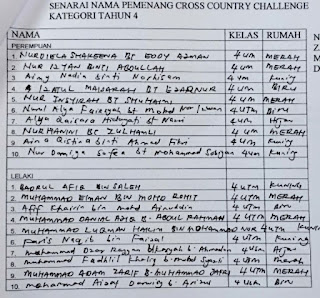 SENARAI NAMA PEMENANG CROSS COUNTRY CHALLENGE
KATEGORI TAHUN 4
NAMA KELAS RUMAH
PEREMPUAN
1. NURDIELA SHAKEENA BT EDDY AZMAN 4 UM MERAH
2. NUR IZYAN BINTI ABDULLAH 4 UM MERAH
3. Aimy Nadia binti Norhisam 4 um Kuning
4. IZATUL MAWARAH BT 4 UM BIRU
5. NUR INSYIRAH BT SHUHAIMI 4 UM MERAH
6. Nurul Alya Faiqah bt Mohd 4 UTM BIRU
7. Alya Qaisara Hidayati bt 4 UM Hijau
8. NURHANINI BT ZULHAMLI 4 UM MERAH
9. Ain a Qistina binti Ahmad Fikri 4 um Kuning
10. Nur Damiya Safea bt Mohammad 4 um Kuning
LELAKI
1. BADRUL AFIQ BIN SALEH 4 UTM KUNING
2. MUHAMMAD EMAN BIN MOHD ROHIT 4 UM MERAH
3. Afif Khairi bin mohd 4 UTM BIRU
4. MUHAMMAD DANIAL AZIQ B. ABDUL RAHMAN 4 UTM MERAH
5. MUHAMMAD LUQMAN HAKIM BIN MOHAMMAD NOR 4 UTM KUNING
6. Faris Naqib bin Faizal 4 UTM Kuning
7. mohammad Bin 4 UTM Hijau
8. muhammad Fadhlil b. mohd 4 UTM MERAH
9. MUHAMMAD ADAM ZARIF B. MUHAMMAD 4 UM MERAH
10. mohammad b. 4 UM BIRU